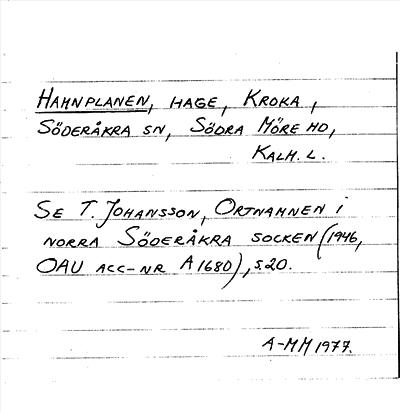 HAMNPLANEN, HAGE, KROKA,
SÖDERÅKRA SN, SÖDRA MÖRE HD,
KALM. L.
SE T. JOHANSSON, ORTNAMNEN I
NORRA SÖDERÅKRA SOCKEN (1946,
OAU ACC-NR A1680), S.20.
A-MM 1977.